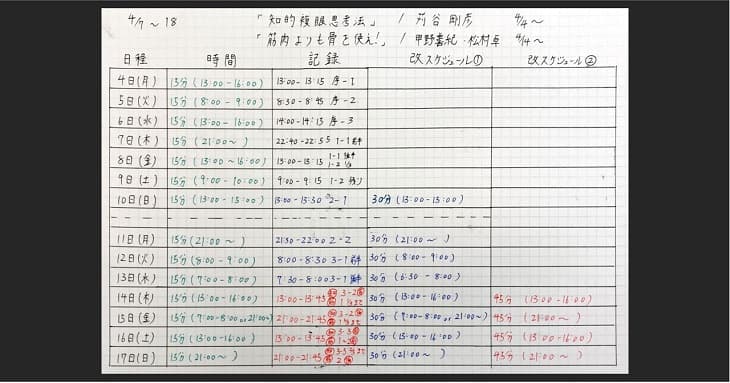 4/7 〜 18 「知的複眼思考法」 / 苅谷 剛彦 4/4 〜
「筋肉よりも骨を使え!」 / 甲野善紀・松村卓 4/14〜
日程 時間 記録 改スケジュール① 改スケジュール②
4日(月) 15分 (13:00 - 16:00) 13:00 - 13:15 序-1
5日(火) 15分 (8:00 - 9:00) 8:30 - 8:45 序-2
6日(水) 15分 (13:00 - 16:00) 14:00 - 14:15 序-3
7日(木) 15分 (21:00〜 ) 22:40 - 22:55 1-1
8日(金) 15分 (13:00 〜16:00) 13:00 - 13:15 1-1 1-2
9日(土) 15分 (9:00 - 10:00) 9:00 - 9:15 1-2 残り
10日(日) 15分 (13:00 - 15:00) 13:00 - 13:30 2-1 30分 (13:00 - 15:00)
11日(月) 15分 (21:00 〜 ) 21:30 - 22:00 2-2 30分 (21:00 〜 )
12日(火) 15分 (8:00 - 9:00) 8:00 - 8:30 3-1 前半 30分 (8:00 - 9:00)
13日(水) 15分 (7:00 - 8:00) 7:30 - 8:00 3-1 後半 30分 (6:30 - 8:00)
14日(木) 15分 (13:00 - 16:00) 13:00 - 13:45 3-2 30分 (13:00 - 16:00) 45分 (13:00 - 16:00)
15日(金) 15分 (7:00 - 8:00 or 21:00〜) 21:00 - 21:45 3-2 30分 (7:00 - 8:00 or 21:00〜) 45分 (21:00 〜 )
16日(土) 15分 (13:00 - 16:00) 13:00 - 13:45 3-3 30分 (13:00 - 16:00) 45分 (13:00 - 16:00)
17日(日) 15分 (21:00 〜 ) 21:00 - 21:45 30分 (21:00 〜 ) 45分 (21:00 〜 )